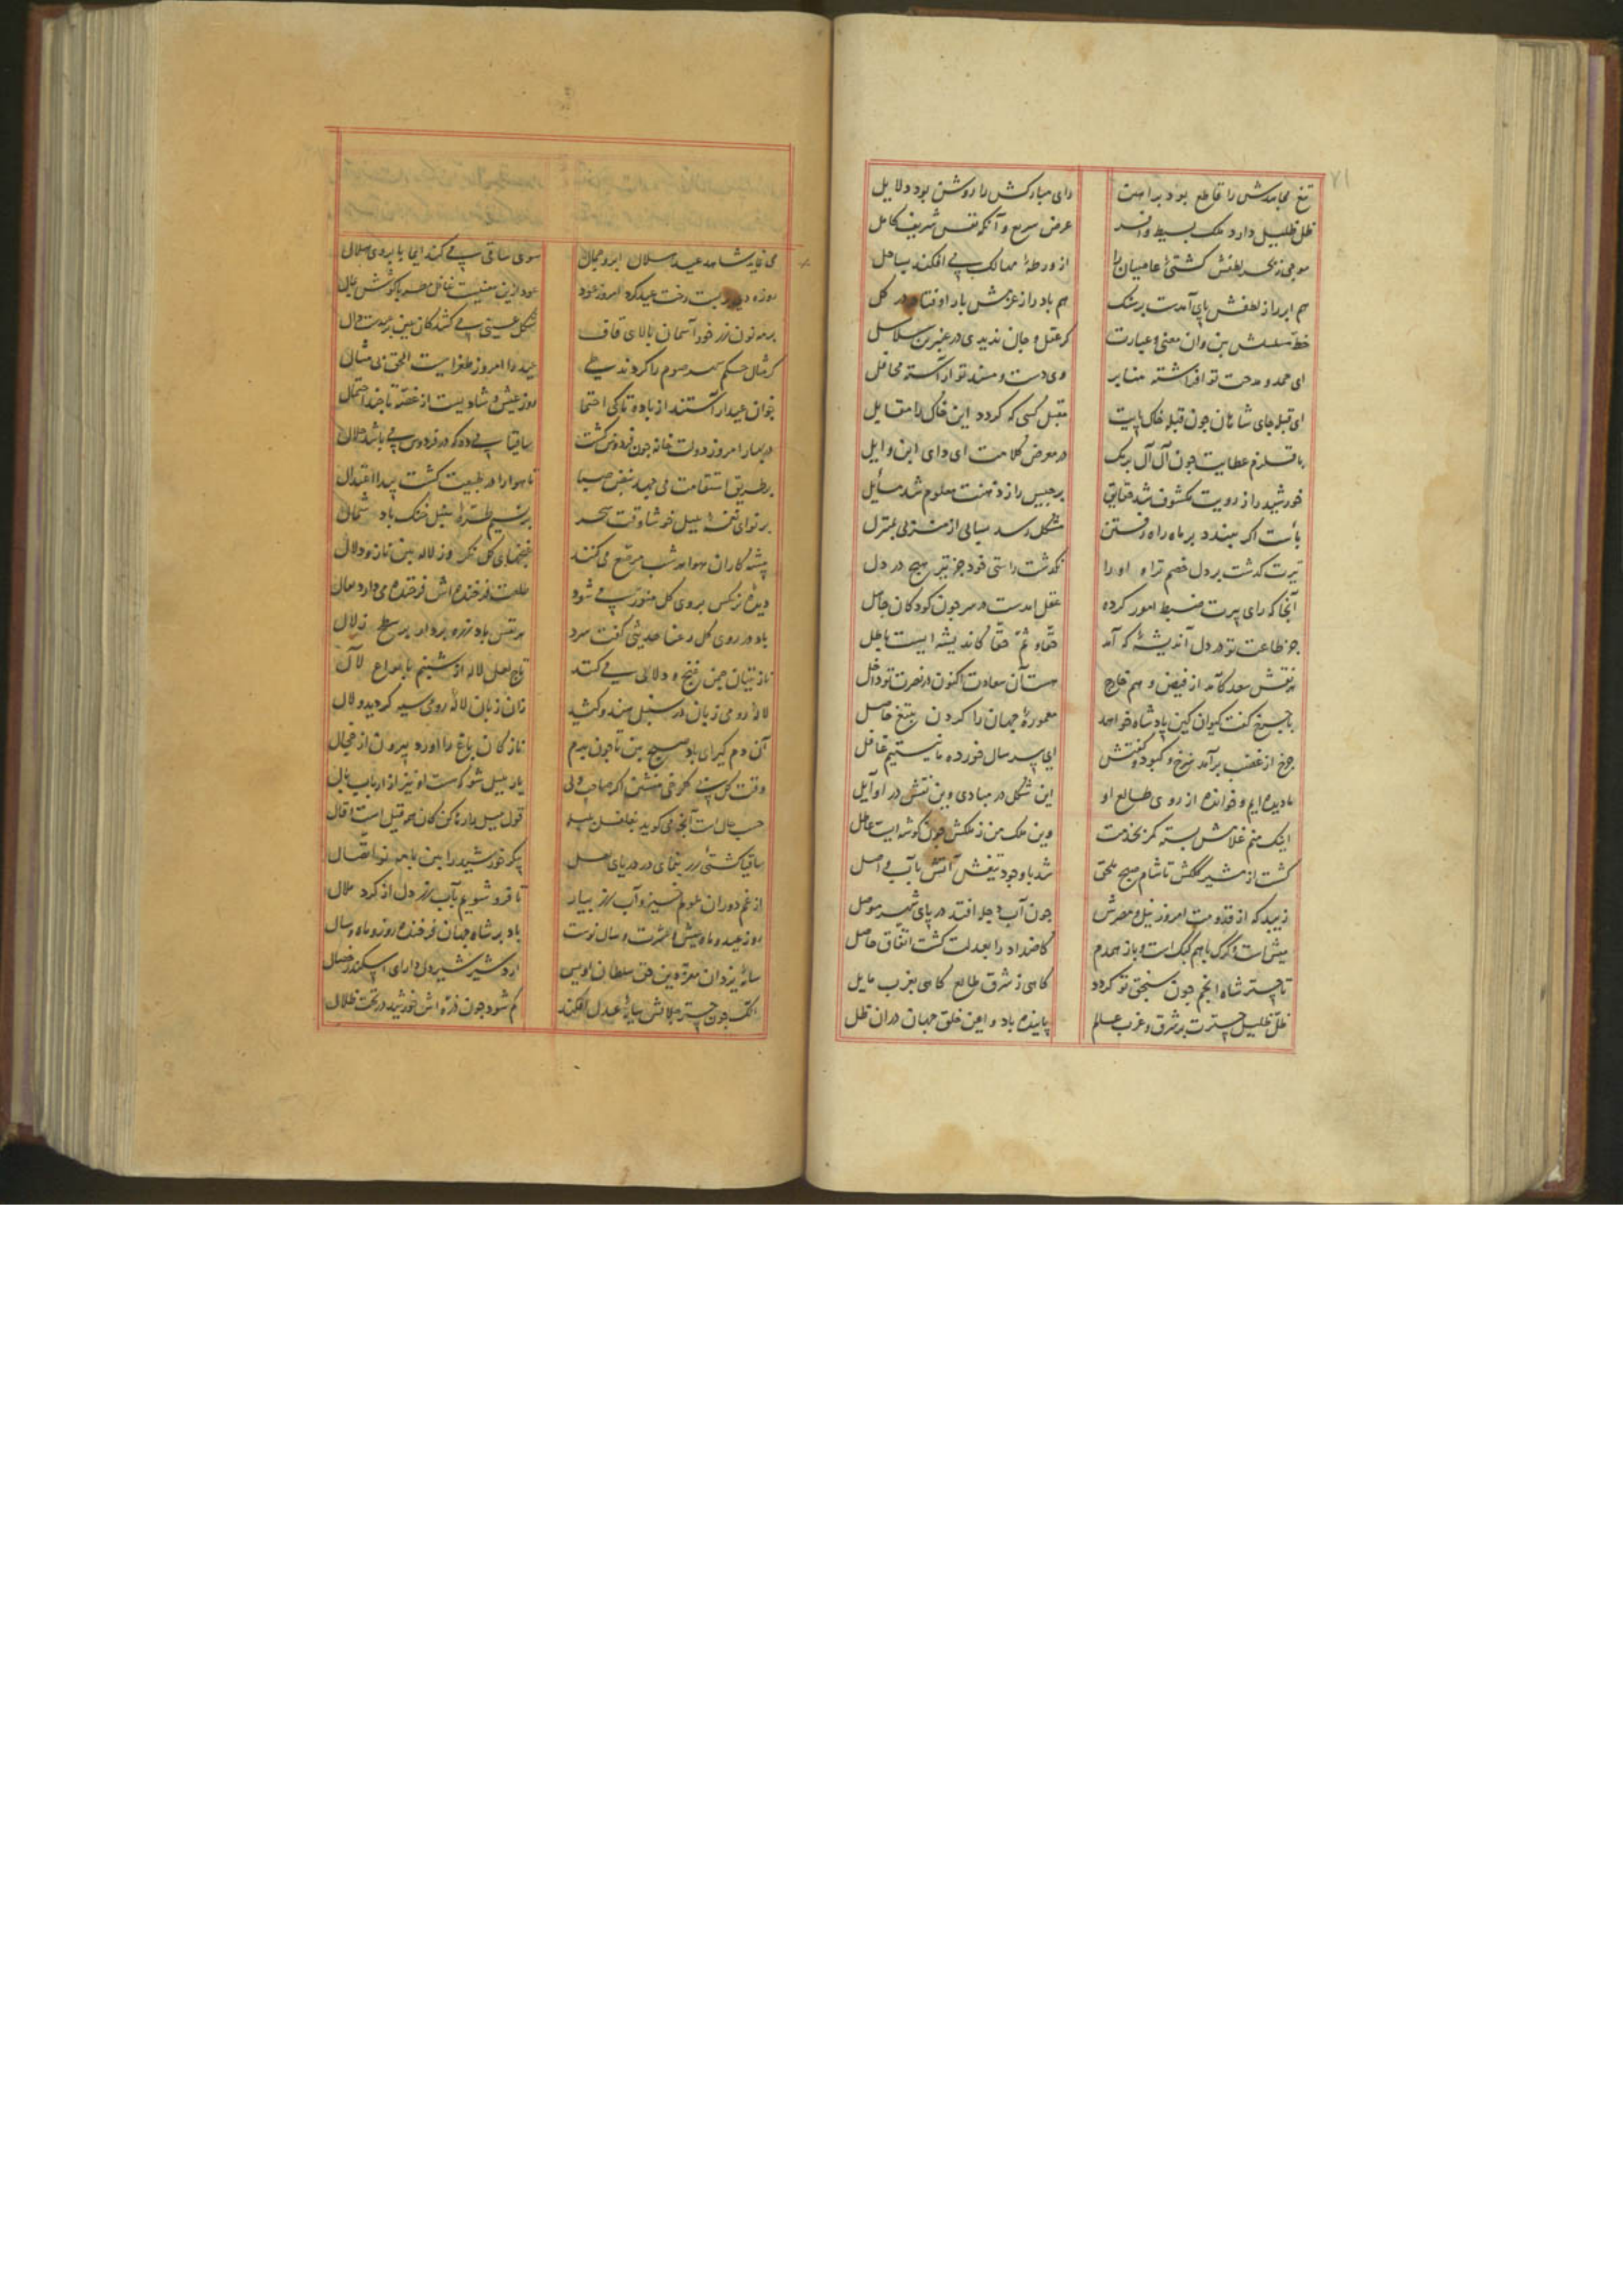 ۷۱
تیغ مجاهدش را قاطع بود براهین رای مبارکش را روشن بود دلایل
ظل ظلیل دارد ملک بسیط وافر عرض سریع و آنکه نفس شریف کامل
موجی ز بحر لطفش کشتی عاصیان را از ورطهٔ مهالک می افکند بساحل
هم ابر را از لطفش پای آمدست برشک هم باد را ز عزمش بار اوفتاد در کل
خط مسلسلش بین وان معنی و عبارت کر عقل و جان ندیدی در عنبرین سلاسل
ای حمد و مدحت تو افراشته منابر وی دست و مسند تو آراسته محافل
ای قبله جای شاهان چون قبله خاک پایت مقبل کسی که کردد این خاک را مقابل
با قلزم عطایت چون آل آل برمک در معرض کلامت ای دای ابن وایل
خورشید را ز رویت مکشوف شد حقایق برجیس را ز ذهنت معلوم شد مسائل
بأست اگر ببندد بر ماه راه رفتن مشکل رسد سیابی از منزلی بمنزل
تیرت گذشت بر دل خصم ترا و او را نگذشت راستی خود جز تیر هیچ در دل
آنجا که رای پیرت ضبط امور کرده عقل امدست در سر چون کودکان جاهل
جز طاعت تو در دل اندیشهٔ که آمد حقا و ثم حقا کاندیشه ایست باطل
هر نقش سعد کآمد از فیض و هم خارج هست آن سعادت اکنون در نصرت تو داخل
با چرخ گفت کیوان کین پادشاه خواهد معمورهٔ جهان را کردن بتیغ حاصل
چرخ از غضب برآمد سرخ و کبود و گفتش ای پیر سال خورده ما نیستیم غافل
ما دیده ایم و خوانده از روی طالع او این شکل در مبادی وین نقش در اوایل
اینک منم غلامش بسته کمر بخدمت وین ملک من ز ملکش چون گوشه ایست عاطل
گشت از مشیر کلکش تا شام صبح ملحق شد با وجود تیغش آتش بآب واصل
زیبد که از قدومت امروز نیل و مصرش چون آب دجله افتد در پای شهر موصل
میش است و گرگ باهم کبک است و باز همدم کاضداد را بعدلت گشت اتفاق حاصل
تا چتر شاه انجم چون سنجق تو گردد گاهی ز شرق طالع گاهی بغرب مایل
ظل ظلیل چترت بر شرق و غرب عالم پاینده باد و امن خلق جهان دران ظل
می نماید شاهد عید هلال ابرو جمال سوی ساقی می کند ایما بابروی هلال
روزه دی بربست رخت عید کرد امروز عود عود ازین معنیست غافل مطربا گوشش بمال
بر مه نون زر خود آسمان بالای قاف شکل عیدی می کشد کان عین برعیدست دال
کر مثال حکم شهر صوم را کردند طی عید را امروز طغراییست الحق بی مثال
خوان عید آراستند از باده تا کی احتما روز عیش و شادیست از غصه تا چند احتمال
در بهار امروز دولت خانه چون فردوس گشت ساقیا می ده که در فردوس می باشد حلال
بر طریق استقامت می جهد نبض صبا تا هوا را در طبیعت گشت پیدا اعتدال
بر نوای نغمهٔ بلبل خوشا وقت سحر بر نسیم طرهٔ سنبل خنک باد شمال
پیشه کاران هوا هر شب مرصع می کنند
دیدهٔ نرگس بروی گل منور می شود طلعت فرخنده اش فرخنده می دارد بفال
باد در روی گل رعنا حدیثی گفت سرد
نازنینان چمن غنج و دلالی می کنند تاج لعل لاله از شبنم بانواع لآل
لالهٔ رومی زبان در سنبل هندو کشید زان زبان لالهٔ رومی سیه گردید و لال
آن دم گیرای باد صبح بین تا چون بدم نازکان باغ را آورد بیرون از حجال
حسب حال است آنچه می گوید بغلغل بلبله قول بلبل یاد تا کن کان همه قیل است و قال
ساقیا کشتی زر بنمای در دریای لعل پیکر خورشید را بین با مه نو اتصال
از غم دوران ملولم خیز و آب رز بیار تا فرو شویم بآب رز دل از گرد ملال
روز عید و ماه عیش و عشرت و سال نوست باد بر شاه جهان فرخنده روز و ماه و سال
سایهٔ یزدان معز دین حق سلطان اویس اردشیر شیردل دارای اسکندر خصال
آنک چون چتر جلالش سایهٔ عدل افکند گم شود چون ذره اش خورشید در تحت ظلال